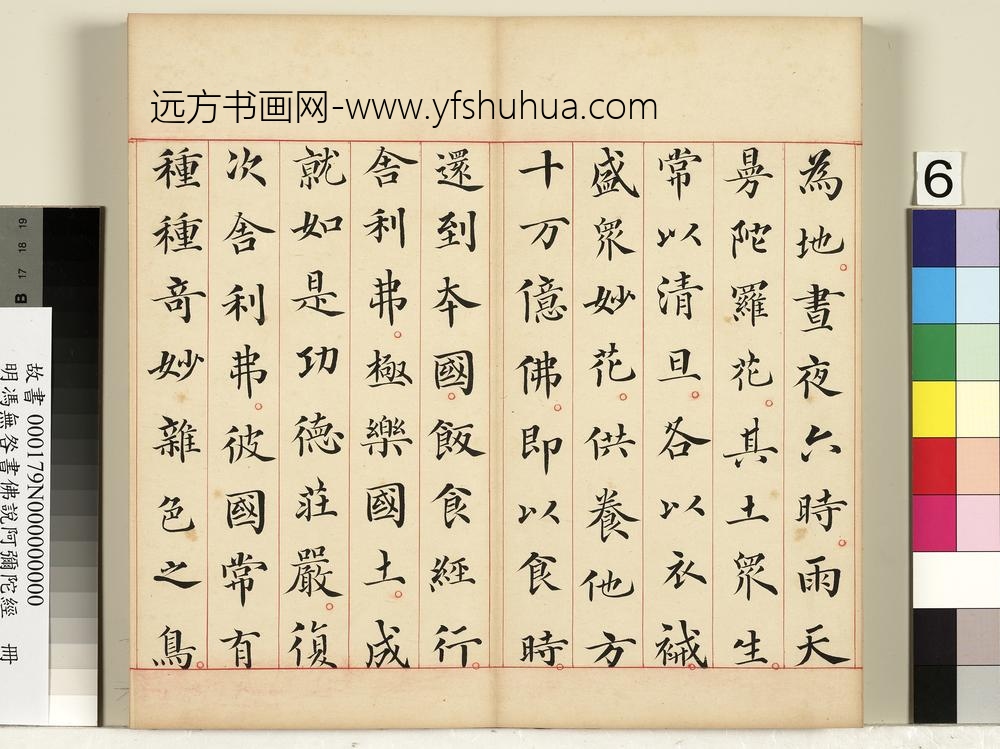 远方书画网-www.yfshuhua.com
為地晝夜六時雨天
曼陀羅花其土眾生
常以清旦各以衣祴
盛眾妙花供養他方
十万億佛即以食時
還到本國飯食經行
舍利弗極樂國土成
就如是功德莊嚴復
次舍利弗彼國常有
種種奇妙雜色之鳥
6
19
18
17
B
故書 000179N000000000
明馮無咎書佛說阿彌陀經 冊